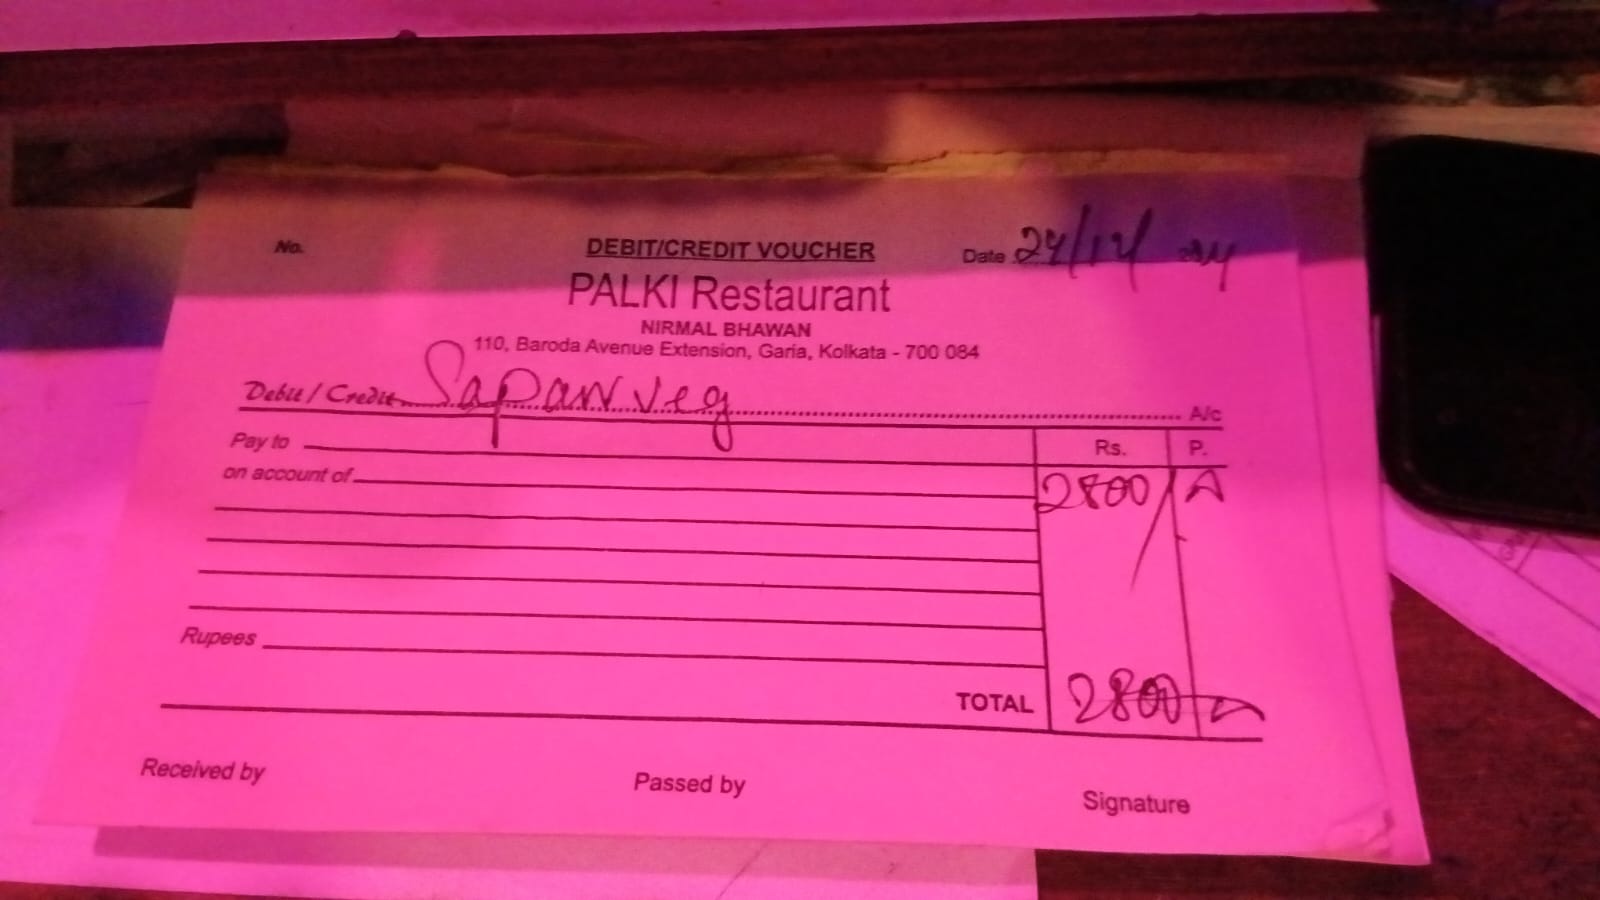 No.
DEBIT/CREDIT VOUCHER
Date
PALKI Restaurant
NIRMAL BHAWAN
110, Baroda Avenue Extension, Garia, Kolkata - 700 084
Debit / Credit Sapan veg A/c
Pay to Rs. P.
on account of 2800/
Rupees
TOTAL 2800
Received by Passed by Signature